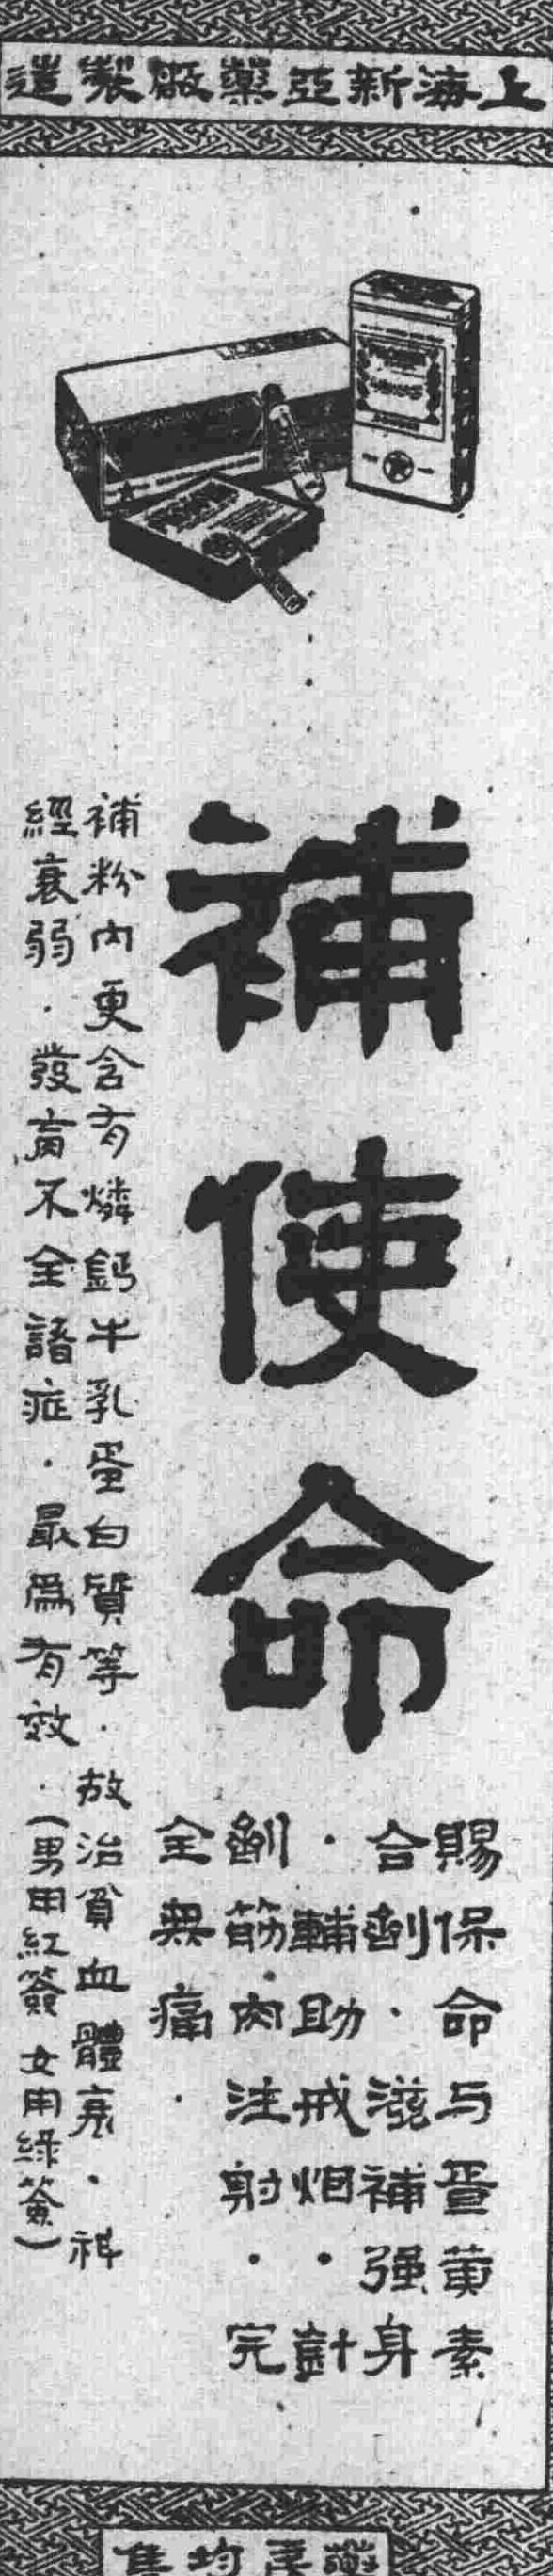 上海新亞藥廠製造
補使命
賜保命与蛋黄素
合劑·滋補强身
·輔助戒烟·針
劑筋肉注射·完
全無痛·
補粉內更含有燐鈣牛乳蛋白質等·故治貧血體衰·神
經衰弱·發育不全諸症·最爲有效·(男用紅簽 女用綠簽)
藥房均售